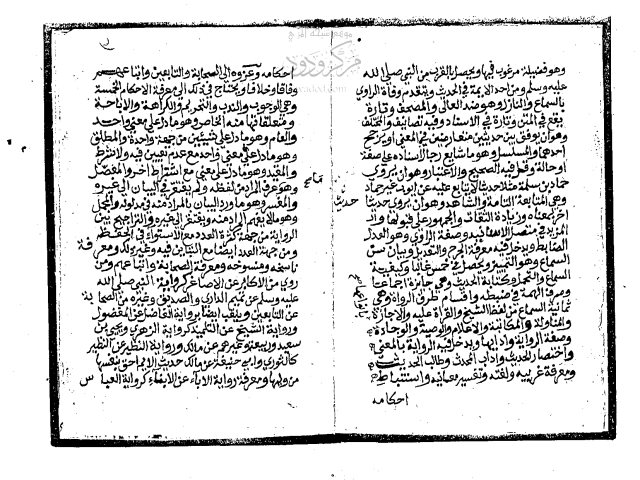 وهو فضيلة مرغوب فيها ويحصل بالقرب من النبي صلى الله
عليه وسلم ومن احد الايمة في الحديث وبتقدم وفاة الراوي
بالسماع والنازل وهو ضد العالي والمصحف وتارة
يقع في المتن وتارة في الاسناد وفيه تصانيف والمختلف
وهو ان يوفق بين حديثين متعارضين في المعنى او يرجح
احدهما والمسلسل وهو ما تتابع رجال اسناده على صفة
او حالة وقل فيه الصحيح والاعتبار وهو ان يروي
حماد بن سلمة مثلا حديثا لا يتابع عليه عن ايوب عن حماد
وهي المتابعة التامة والشاهد وهو ان يروى حديثا
حديث
اخر بمعناه وزيادة الثقات والجمهور على قبولها و
المزيد في متصل الاسانيد وصفة الراوي وهو العدل
الضابط ويدخل فيه معرفة الجرح والتعديل وبيان سن
السماع وهو التمييز ويحصل في خمس غالبا وكيفية
السماع والتحمل وكتابة الحديث وهي جائزة اجماعا
ومرف الهمة في ضبطه واقسام طرق الرواة وهي
ثمانية السماع من لفظ الشيخ والقراة عليه والاجازة
والمناولة والمكاتبة والاعلام والوصية والوجادة
وصفة الرواية وادابها ويدخل فيه الرواية بالمعنى
واختصار الحديث واداب المحدث وطالب الحديث
ومعرفة غريبه ولغته وتفسير معانيه واستنباط
احكامه
احكامه وعزوه الى الصحابة والتابعين واتباعهم
وفاقا وخلافا ويحتاج في ذلك الى معرفة الاحكام الخمسة
وهي الوجوب والندب والتحريم والكراهة والاباحة
ومتعلقاتها من الخاص وهو ما دل على معنى واحد
والعام وهو ما دل على شيئين من جهة واحدة والمطلق
وهو ما دل على معنى واحد مع عدم تعيين فيه ولا شرط
والمقيد وهو ما دل على معنى مع اشتراط اخر والمفصل
وهو ما عرف المراد من لفظه ولم يفتقر في البيان الى غيره
والمفسر وهو ما ورد البيان بالمراد منه في مدلوله والمجمل
وهو ما لا يفهم المراد منه ويفتقر الى غيره والتراجيح بين
الرواية من جهة كثرة العدد مع الاستواء في الحفظ
ومن جهة العدد ايضا مع التباين فيه وغير ذلك ومعرفة
ناسخه ومنسوخه ومعرفة الصحابة واتباعهم ومن
روى من الاكابر عن الاصاغر كرواية النبي صلى الله
عليه وسلم عن تميم الداري والصديق وغيره من الصحابة
عن التابعين ويلقب ايضا برواية الفاضل عن المفضول
ورواية الشيخ عن التلميذ كرواية الزهري ويحيى بن
سعيد وربيعة وغيرهم عن مالك ورواية النظير عن النظير
كالثوري وابي حنيفة عن مالك حديث الايم احق بنفسها
من وليها ومعرفة رواية الاباء عن الابناء كرواية العباس